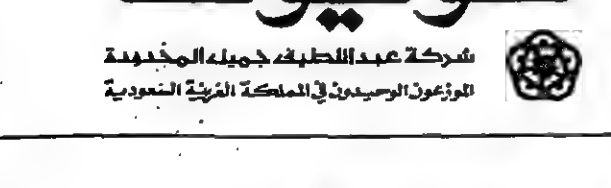 شركة عبد اللطيف جميل المحدودة
الموزعون الوحيدون في المملكة العربية السعودية